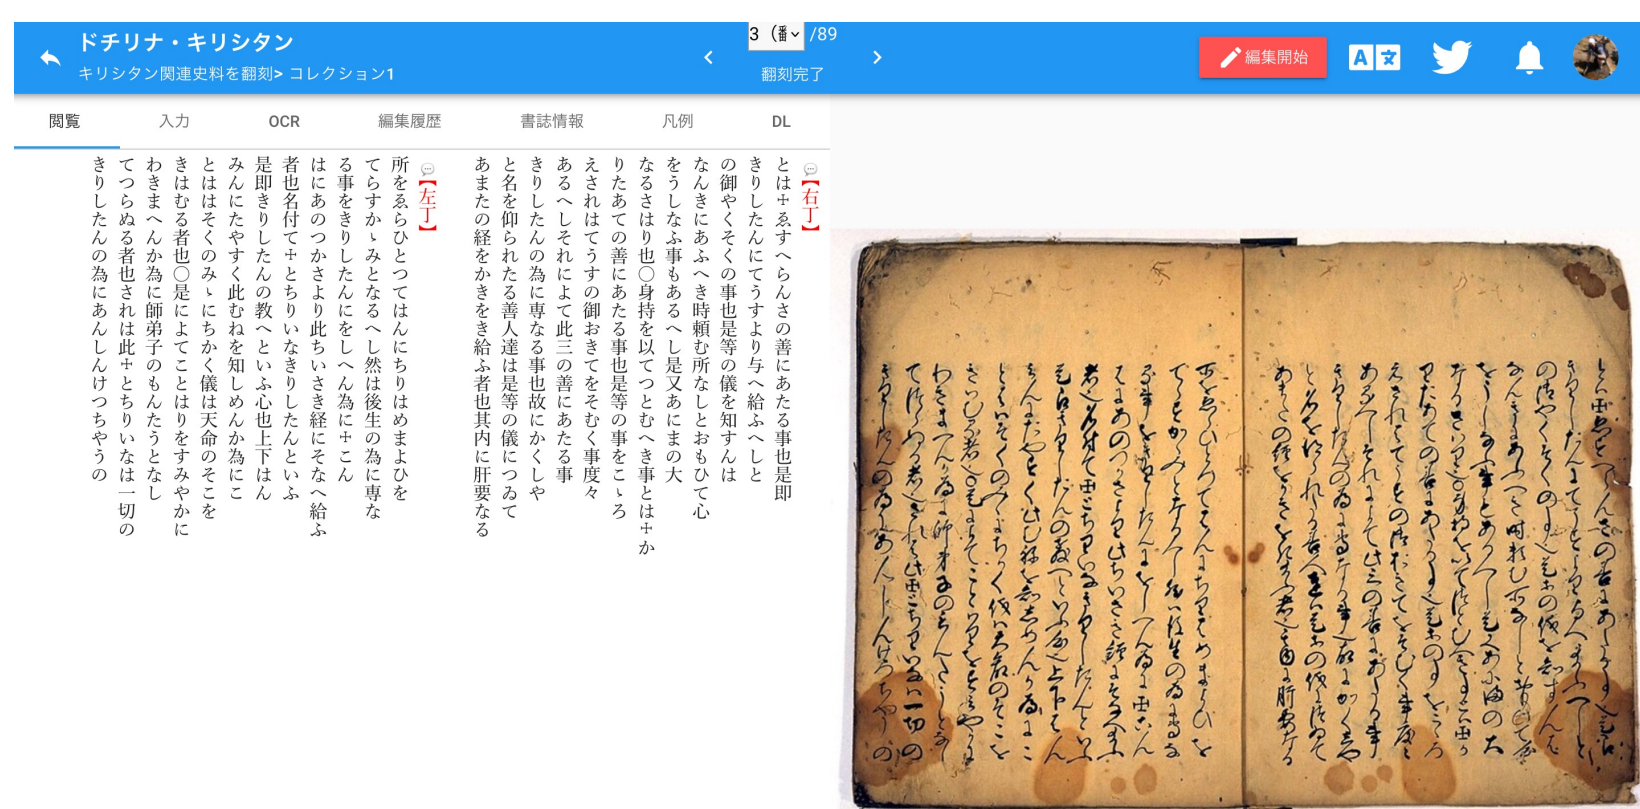 ドチリナ・キリシタン
キリシタン関連史料を翻刻> コレクション1
3（番
/89
翻刻完了
編集開始
閲覧
入力
OCR
編集履歴
書誌情報
凡例
DL
【右丁】
とは☩ゑすへらんさの善にあたる事也是即
きりしたんにてうすより与へ給ふへしと
の御やくそくの事也是等の儀を知すんは
なんきにあふへき時頼む所なしとおもひて心
をうしなふ事もあるへし是又あにまの大
なるさはり也〇身持を以てつとむへき事とは☩か
りたあての善にあたる事也是等の事をこゝろ
えされはてうすの御おきてをそむく事度々
あるへしそれによて此三の善にあたる事
きりしたんの為に専なる事也故にかくしや
と名を仰られたる善人達は是等の儀につゐて
あまたの経をかきをき給ふ者也其内に肝要なる
【左丁】
所をゑらひとつてはんにちりはめまよひを
てらすかゝみとなるへし然は後生の為に専な
る事をきりしたんにをしへん為に☩こん
はにあのつかさより此ちいさき経にそなへ給ふ
者也名付て☩とちりいなきりしたんといふ
是即きりしたんの教へといふ心也上下はん
みんにたやすく此むねを知しめんか為にこ
とははそくのみゝにちかく儀は天命のそこを
きはむる者也〇是によてことはりをすみやかに
わきまへんか為に師弟子のもんたうとなし
てつらぬる者也されは此☩とちりいなは一切の
きりしたんの為にあんしんけつちやうの